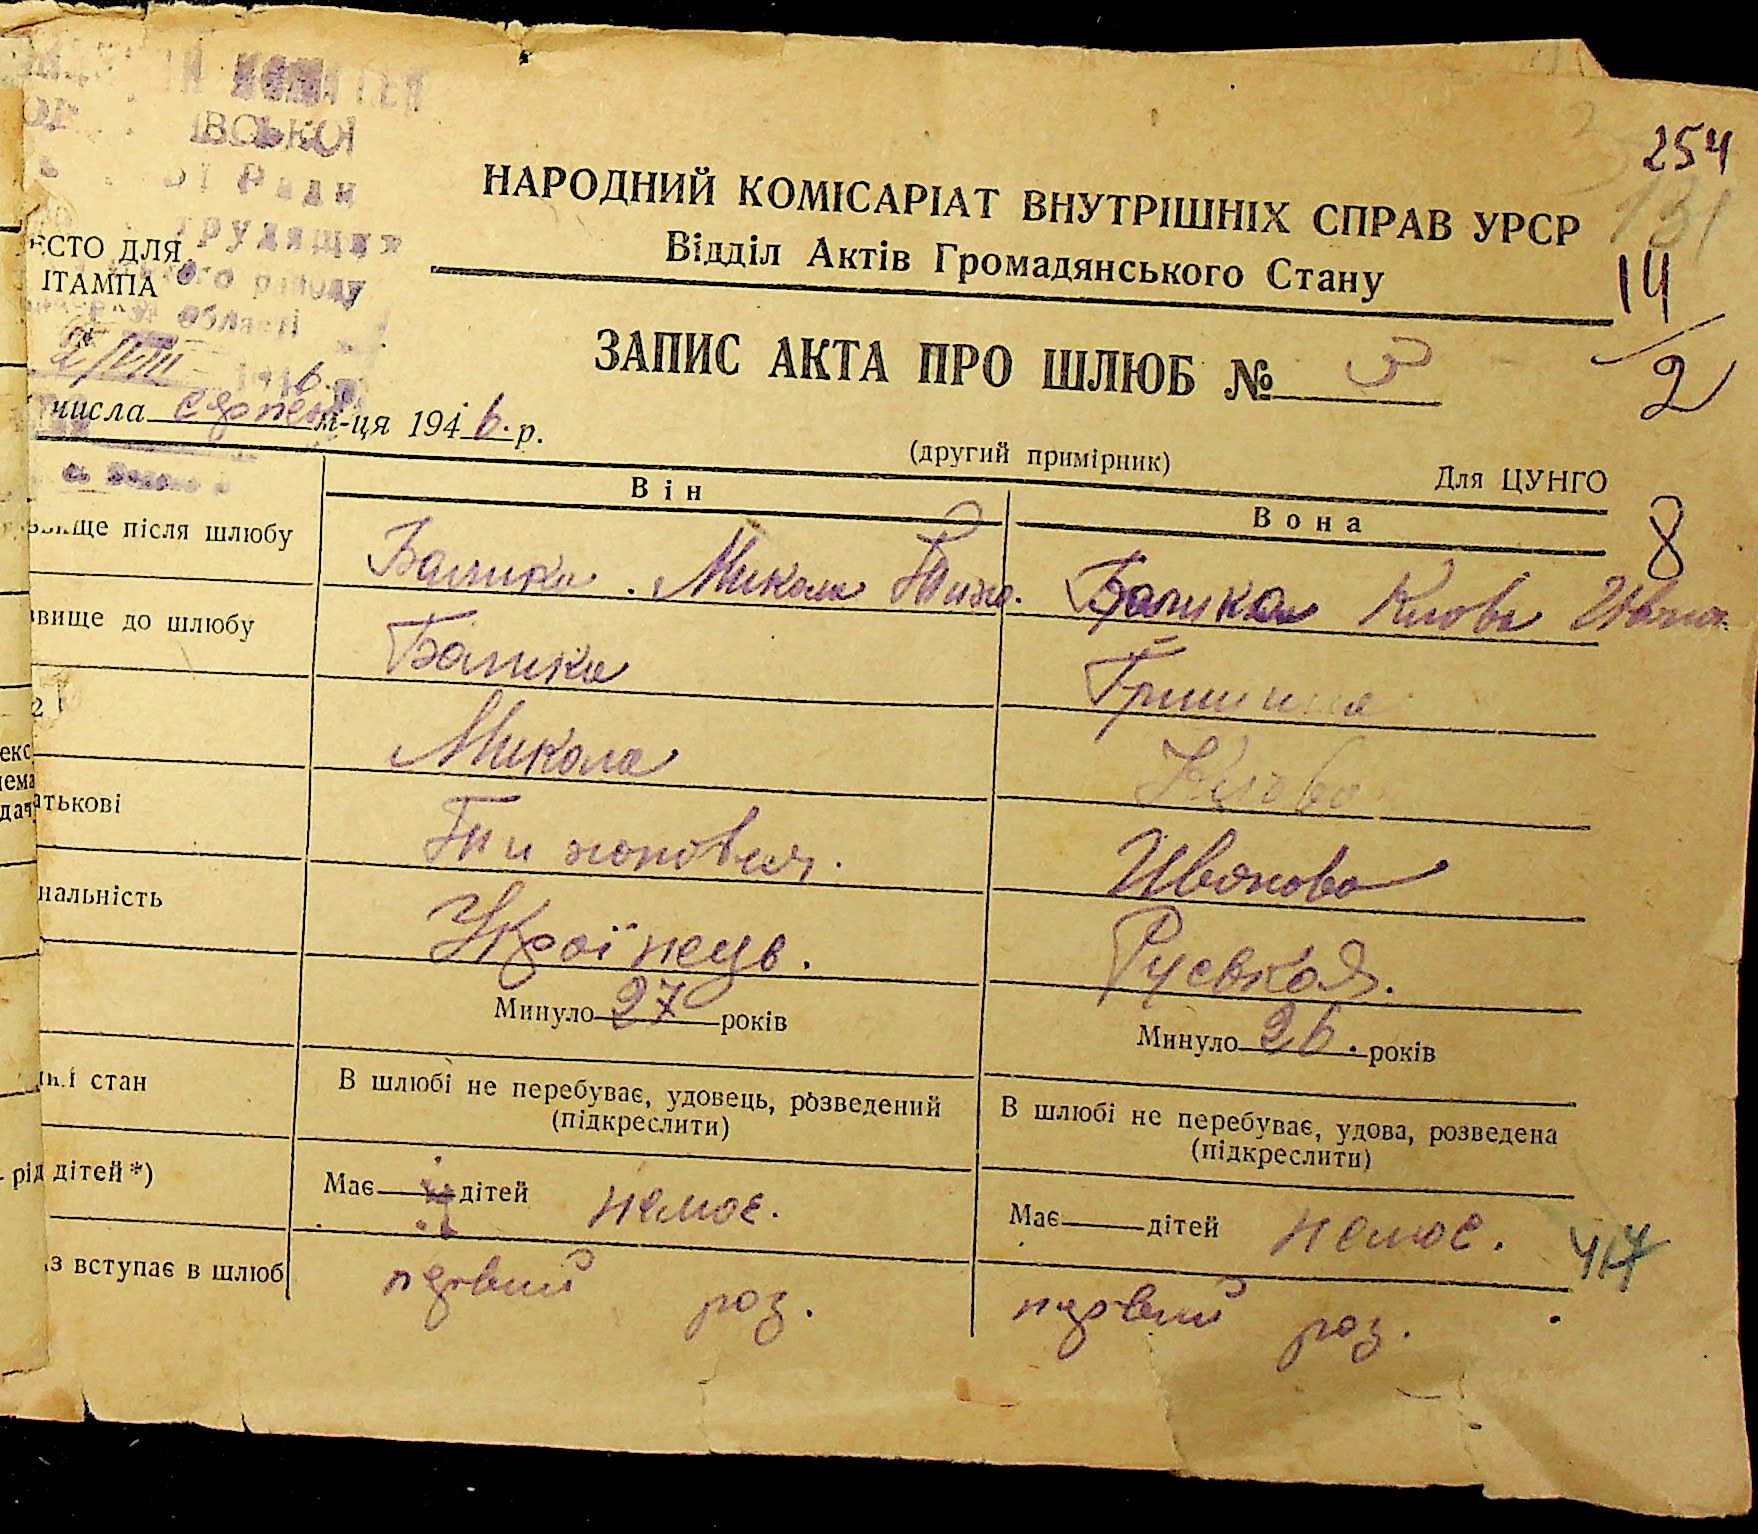 254
131
14
2
8
ВСЬКОЇ
Ради
трудящих
ого району
області
ЕСТО ДЛЯ
ШТАМПА
2/VIII 1946 р.
НАРОДНИЙ КОМІСАРІАТ ВНУТРІШНІХ СПРАВ УРСР
Відділ Актів Громадянського Стану
ЗАПИС АКТА ПРО ШЛЮБ № 3
числа серпень м-ця 1946. р.
(другий примірник)
Для ЦУНГО
Він Вона
вище після шлюбу Балика. Микола Тихо. Балика Клова Ивано
звище до шлюбу Балика Гришина
Микола Клова
атькові Тихонович. Иванова
нальність Українець. Руськоя.
Минуло 27 років Минуло 26. років
ий стан В шлюбі не перебуває, удовець, розведений (підкреслити) В шлюбі не перебуває, удова, розведена (підкреслити)
рід дітей*) Має дітей немоє. Має дітей немоє.
з вступає в шлюб первий роз. первий роз.